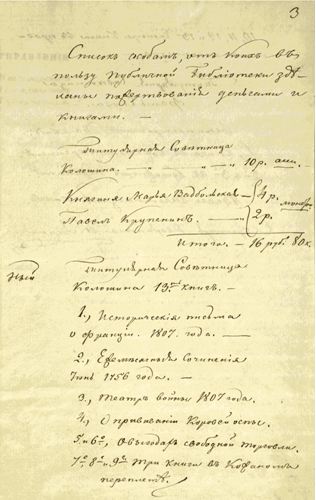 3
Списокъ особамъ, отъ коихъ въ
пользу публичной библіотеки здѣ-
ланы пожертвованій деньгами и
книгами. —
Титулярная Совѣтница
Колошина. — „ — „ — „ 10 р. асси.
Княгиня Марья Вадбольская — 4 р. монет.
Павелъ Крупенинъ. — 2 р.
Итого. — 16 руб. 80 к.
Титулярная Совѣтница
Колошина 13ть книгъ. —
1., Историческія письма
о франціи. 1807. года. —
2., Ежемѣсячныя Сочиненія
Іюнь 1756 года. —
3., Театръ войны 1807 года.
4., О прививаніи Коровей оспы.
5. и 6., О выгодахъ свободной торговли.
7е 8е и 9е Три книги въ Кожаномъ
переплетѣ.